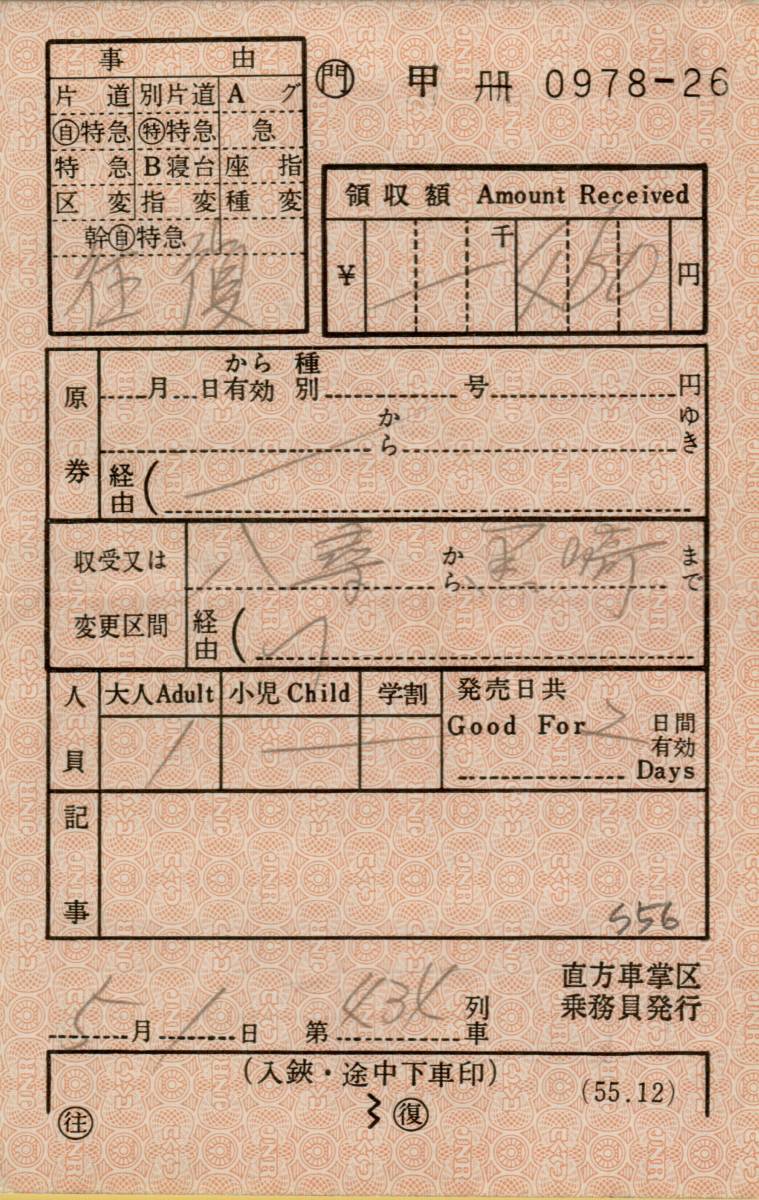 事由
㊞門 甲 冊 0978-26
片道 別片道 Aグ
㉂特急 ㊕特急 急
特急 B寝台 座指
区変 指変 種変
幹㉂特急
往復
領収額 Amount Received
¥ 千 450 円
原券
月 日から有効 種別 号 円
から ゆき
経由(
収受又は変更区間
八尋 から 黒崎 まで
経由(
人員
大人Adult 小児Child 学割
1
発売日共
Good For 2 日間有効
Days
記事
S56
直方車掌区
乗務員発行
5月1日 第434列車
(入鋏・途中下車印)
(55.12)
往 復